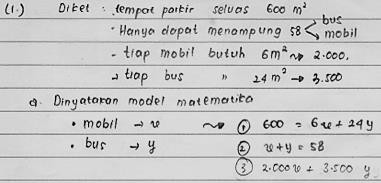 (1.) Diket : tempat parkir seluas 600 m²
- Hanya dapat menampung 58 < bus mobil
- tiap mobil butuh 6m² ~> 2.000,
-> tiap bus " 24 m² -> 3.500
a. Dinyatakan model matematika
• mobil → x ~> ① 600 = 6x + 24y
• bus → y ② x+y = 58
③ 2.000x + 3.500 y